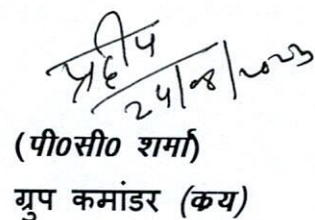 प्रदीप
24/08/2023
(पी०सी० शर्मा)
ग्रुप कमांडर (कय)